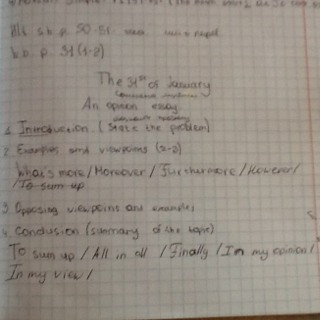 H/t s.b. p. 50-51
w.b. p. 31 (1-2)
The 31st of January
An opinion essay
1. Introduction. (State the problem)
2. Examples and viewpoints (2-3)
What's more / Moreover / Furthermore / However /
To sum up
3. Opposing viewpoints and examples
4. Conclusion (summary of the topic)
To sum up / All in all / Finally / In my opinion /
In my view /